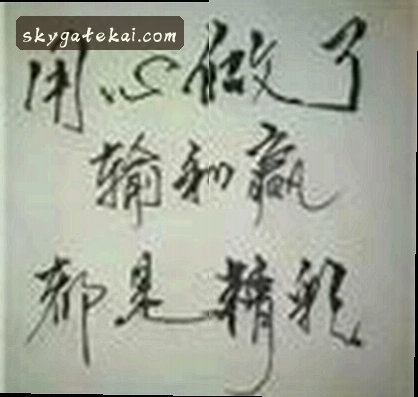 skygatekai.com
用心做了
输和赢
都是精彩